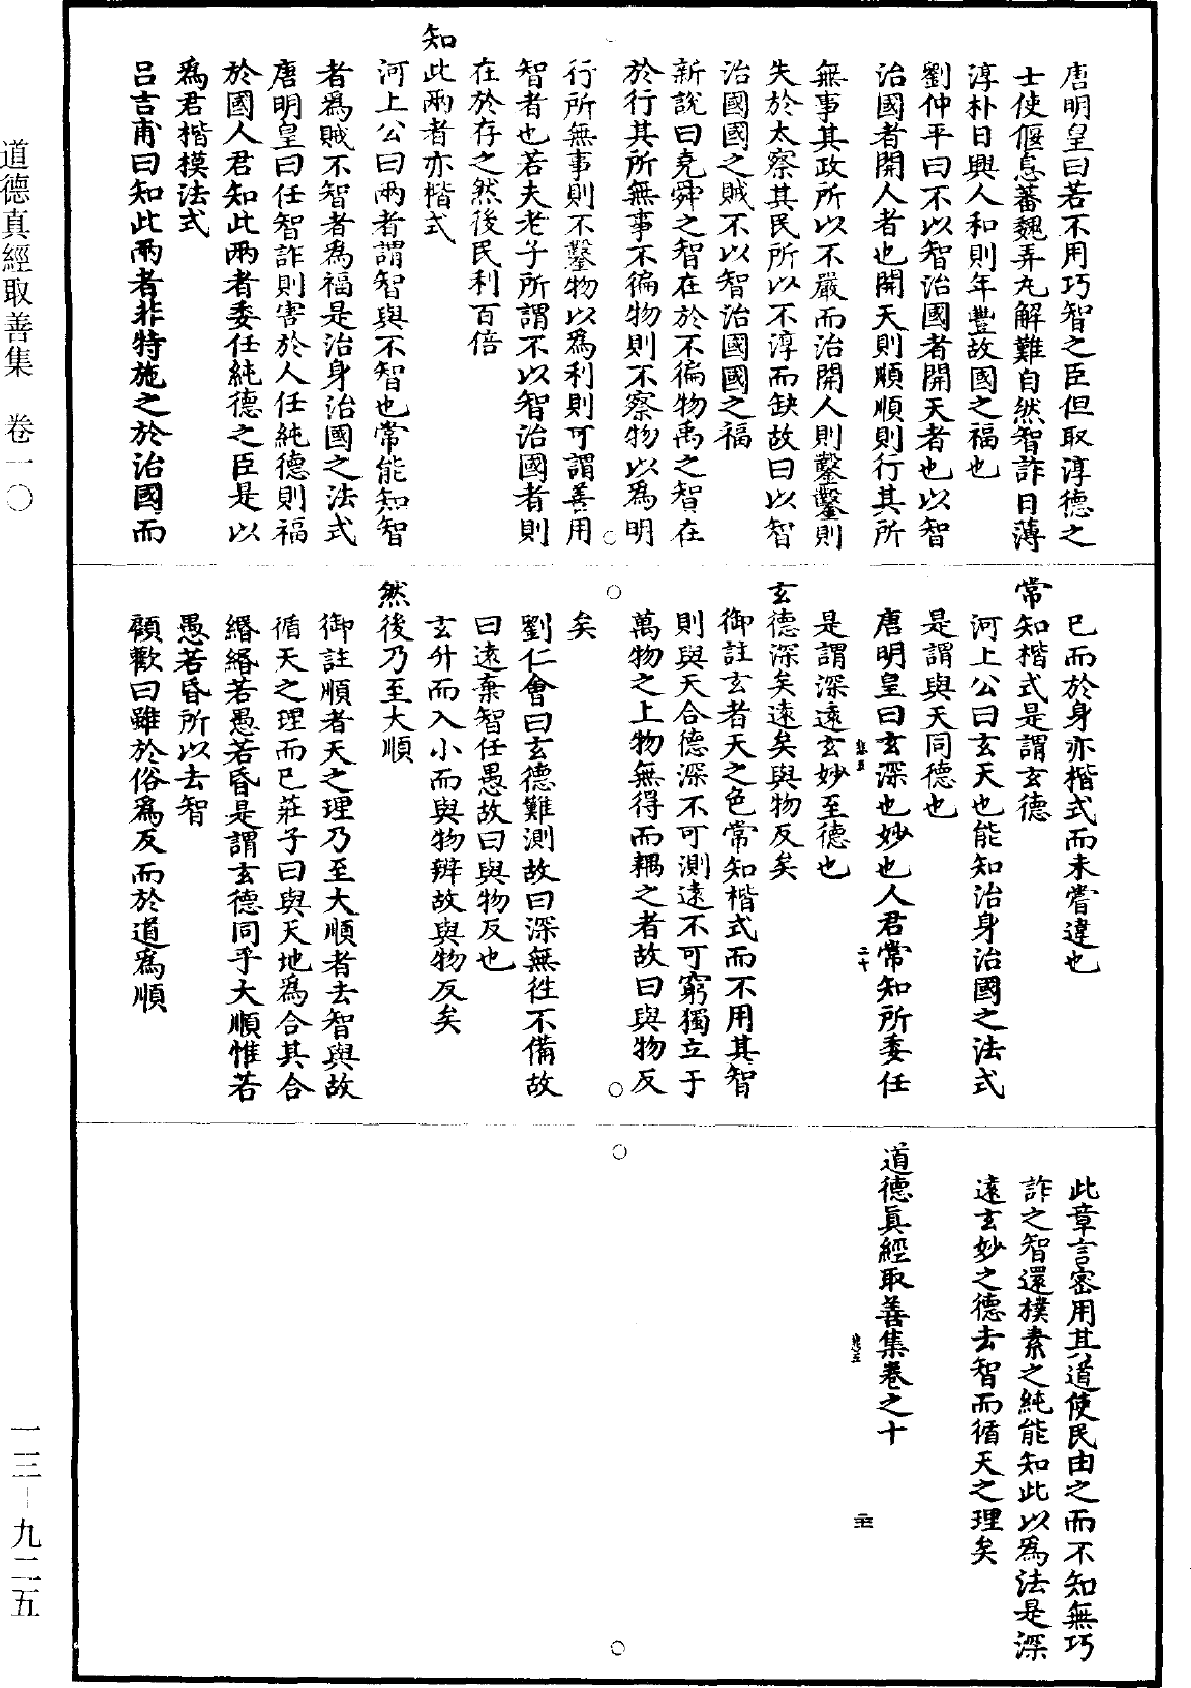 唐明皇曰若不用巧智之臣但取淳德之
士使偃息蕃魏弄丸解難自然智詐日薄
淳朴日興人和則年豐故國之福也
劉仲平曰不以智治國者開天者也以智
治國者開人者也開天則順順則行其所
無事其政所以不嚴而治開人則鑿鑿則
失於太察其民所以不淳而缺故曰以智
治國國之賊不以智治國國之福
新說曰堯舜之智在於不徧物禹之智在
於行其所無事不徧物則不察物以爲明
行所無事則不鑿物以爲利則可謂善用
智者也若夫老子所謂不以智治國者則
在於存之然後民利百倍
知此兩者亦楷式
河上公曰兩者謂智與不智也常能知智
者爲賊不智者爲福是治身治國之法式
唐明皇曰任智詐則害於人任純德則福
於國人君知此兩者委任純德之臣是以
爲君楷模法式
呂吉甫曰知此兩者非特施之於治國而
已而於身亦楷式而未嘗違也
常知楷式是謂玄德
河上公曰玄天也能知治身治國之法式
是謂與天同德也
唐明皇曰玄深也妙也人君常知所委任
是謂深遠玄妙至德也
玄德深矣遠矣與物反矣
御註玄者天之色常知楷式而不用其智
則與天合德深不可測遠不可窮獨立于
萬物之上物無得而耦之者故曰與物反
矣
劉仁會曰玄德難測故曰深無徃不備故
曰遠棄智任愚故曰與物反也
玄升而入小而與物辯故與物反矣
然後乃至大順
御註順者天之理乃至大順者去智與故
循天之理而已莊子曰與天地爲合其合
緡緡若愚若昏是謂玄德同乎大順惟若
愚若昏所以去智
顧歡曰雖於俗爲反而於道爲順
此章言密用其道使民由之而不知無巧
詐之智還樸素之純能知此以爲法是深
遠玄妙之德去智而循天之理矣
道德眞經取善集卷之十
道德真經取善集 卷一〇
一三-九二五